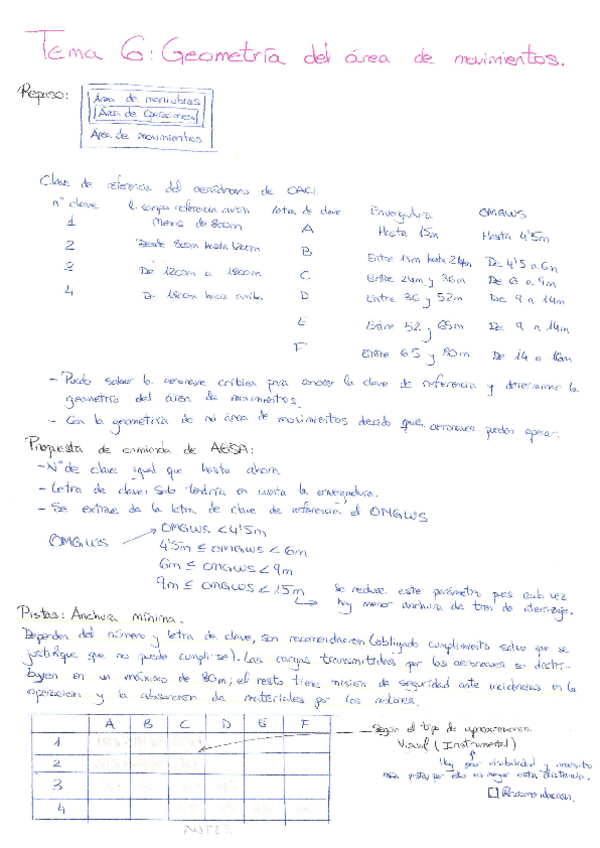 Tema 6: Geometría del área de movimientos.
Repaso:
Área de maniobras
Área de operaciones
Área de movimientos
Clave de referencia del aeródromo de OACI
nº clave L. campo referencia avión Letra de clave Envergadura OMGWS
1 Menos de 800m A Hasta 15m Hasta 4'5m
2 Desde 800m hasta 1200m B Entre 15m hasta 24m De 4'5 a 6m
3 De 1200m a 1800m C Entre 24m y 36m De 6 a 9m
4 De 1800m hacia arriba D Entre 36 y 52m De 9 a 14m
E Entre 52 y 65m De 9 a 14m
F Entre 65 y 80m De 14 a 16m
- Puedo saber la aeronave crítica para conocer la clave de referencia y determinar la
geometría del área de movimientos.
- Con la geometría de mi área de movimientos decido que aeronaves pueden operar.
Propuesta de enmienda de AESA:
- Nº de clave igual que hasta ahora.
- Letra de clave: Solo tendría en cuenta la envergadura.
- Se extrae de la letra de clave de referencia el OMGWS
OMGWS
OMGWS < 4'5m
4'5m ≤ OMGWS < 6m
6m ≤ OMGWS < 9m
9m ≤ OMGWS < 15m
Se reduce este parámetro pues cada vez
hay menor anchura de tren de aterrizaje.
Pistas: Anchura mínima.
Dependen del número y letra de clave, son recomendación (obligado cumplimiento salvo que se
justifique que no puede cumplirse). Las cargas transmitidas por las aeronaves se distri-
buyen en un máximo de 30m; el resto tiene misión de seguridad ante incidencias en la
operación y la absorción de materiales por los motores.
A B C D E F
1
2
3
4
Según el tipo de aproximación.
Visual (Instrumental)
Hay peor visibilidad y necesito
más pista, por ello es mayor esta distancia.
Recomendación.
ANTES